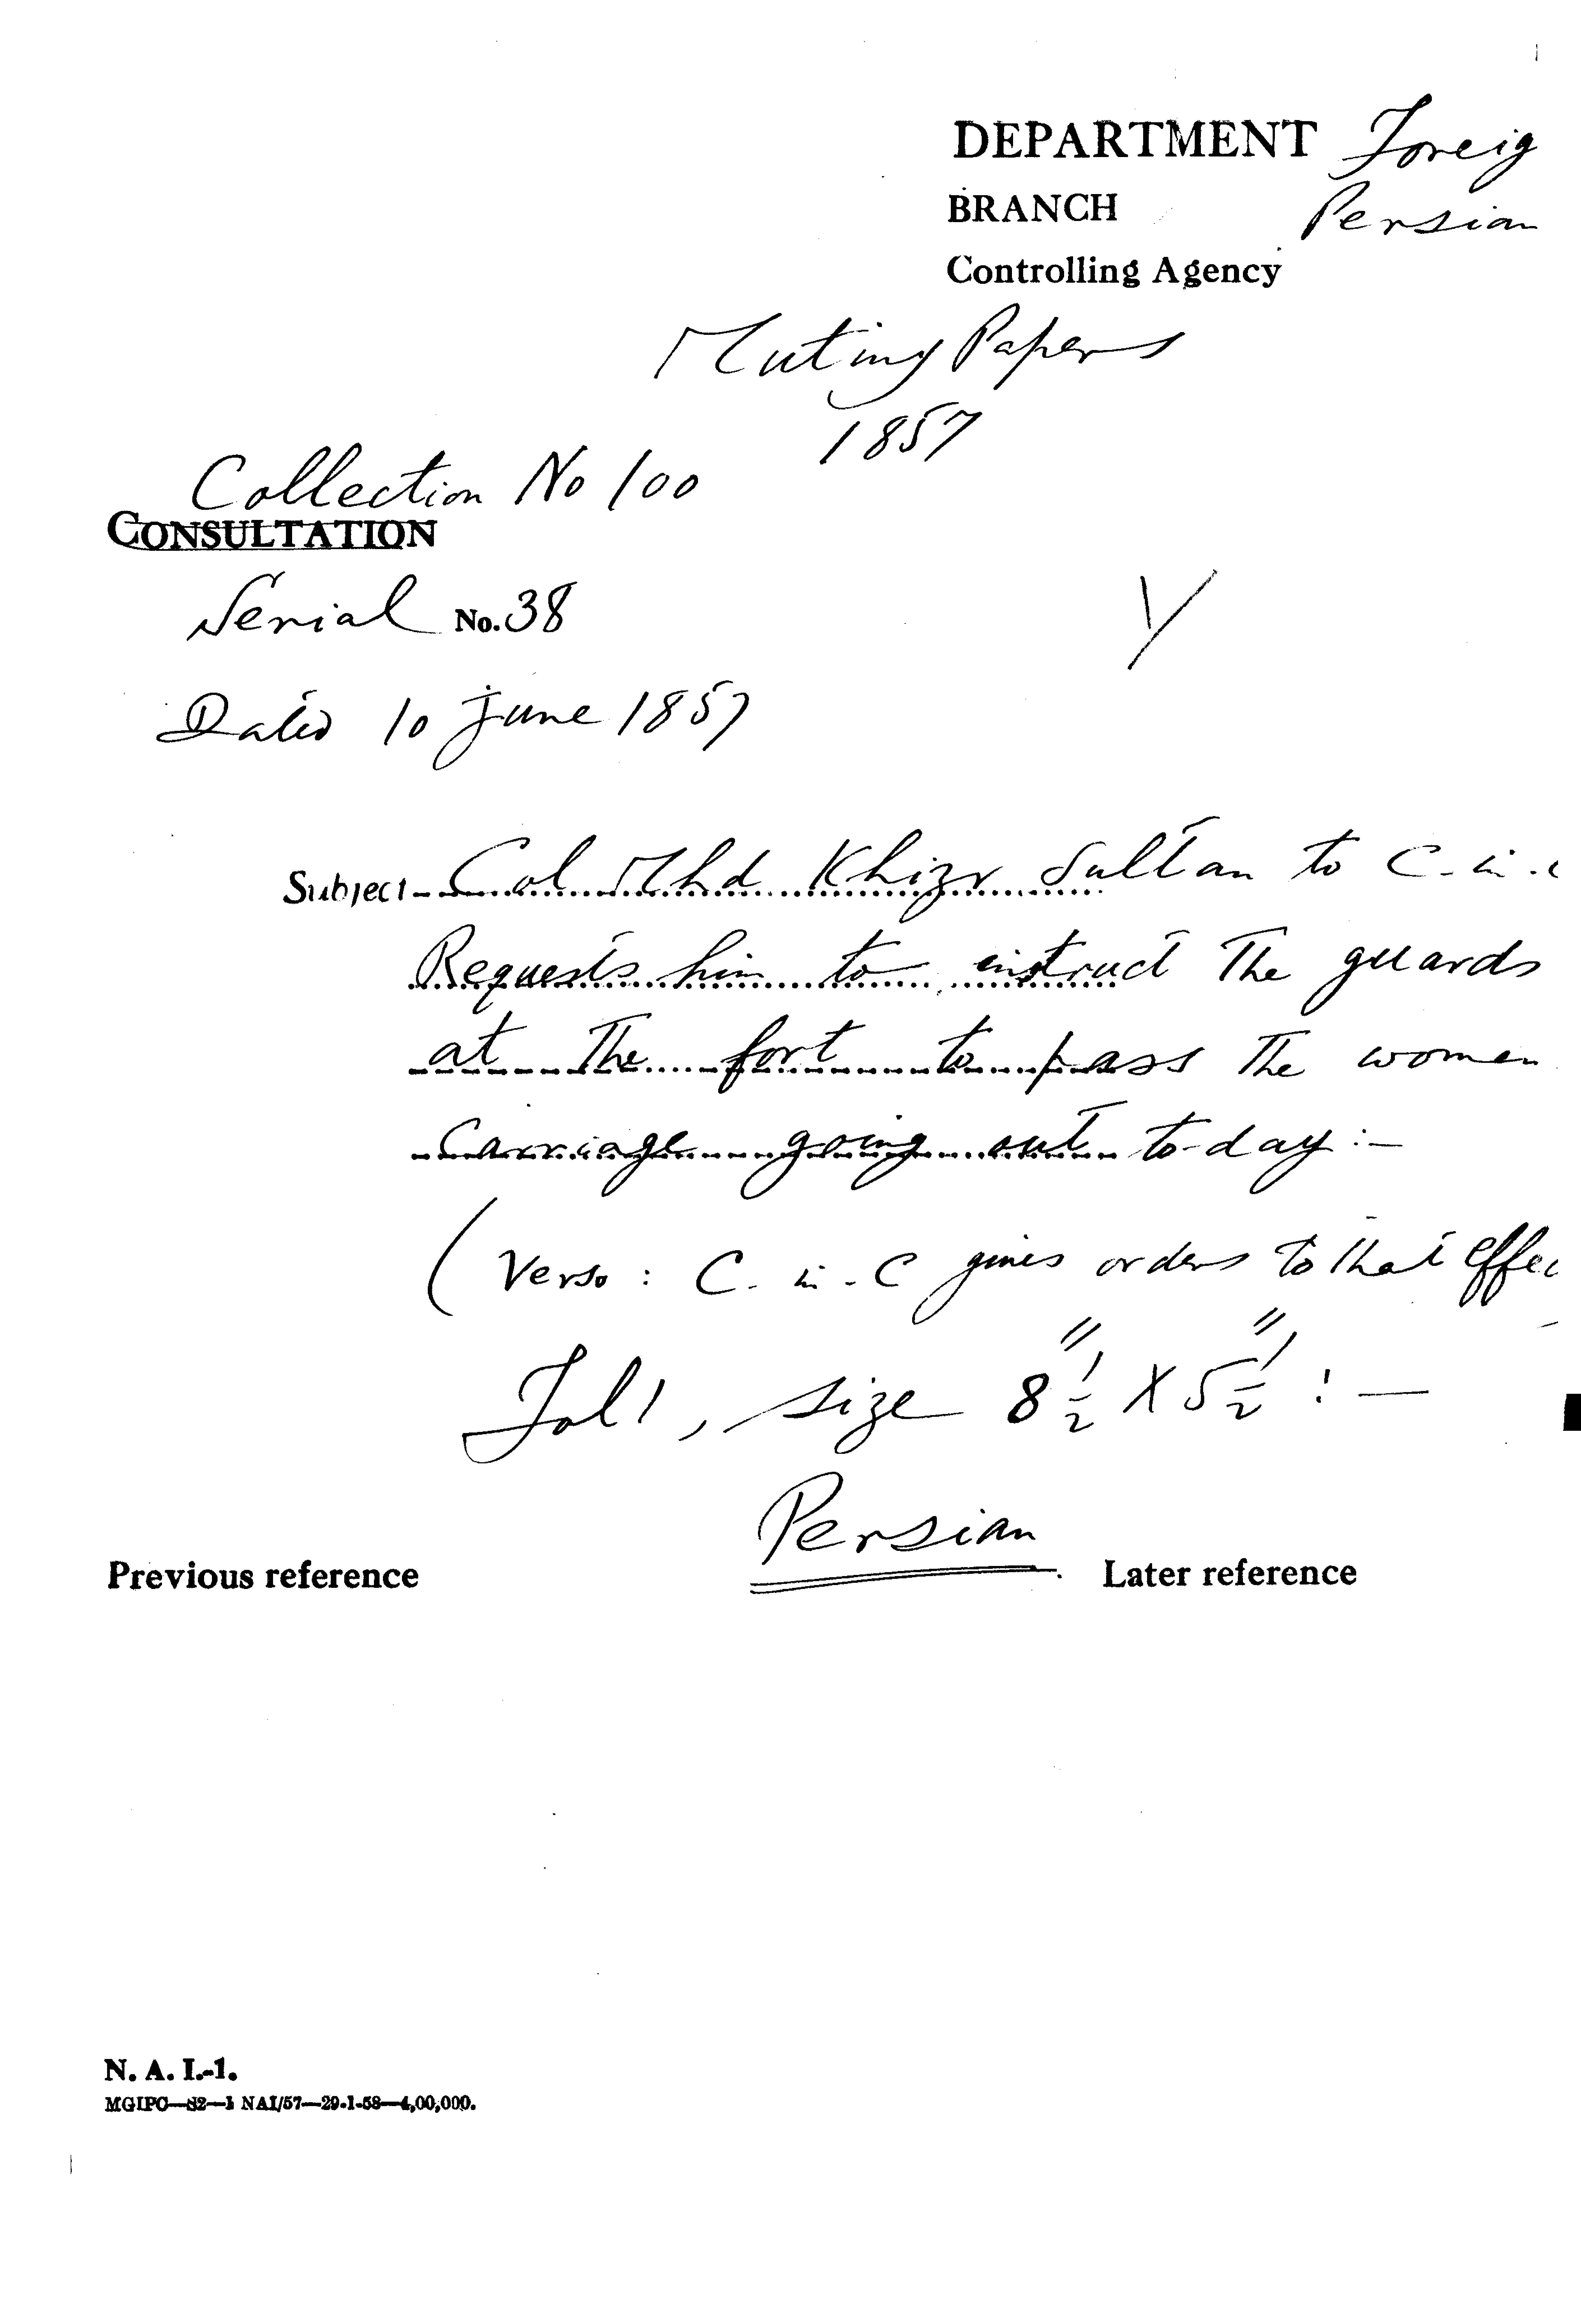 DEPARTMENT Foreig
BRANCH Persian
Controlling Agency
Mutiny Papers
1857
Collection No 100
CONSULTATION
Serial No. 38
Dated 10 June 1857
Subject Col Mhd Khizr Sultan to C-in-c
Requests him to instruct The guards
at The fort to pass The women
Carriage going out to-day :—
( Verso : C-in-C gives orders to that effec
Fol 1, size 8 1/2" X 5 1/2" : —
Persian
Previous reference
Later reference
N. A. I.-1.
MGIPC—S2—1 NAI/57—29-1-58—4,00,000.